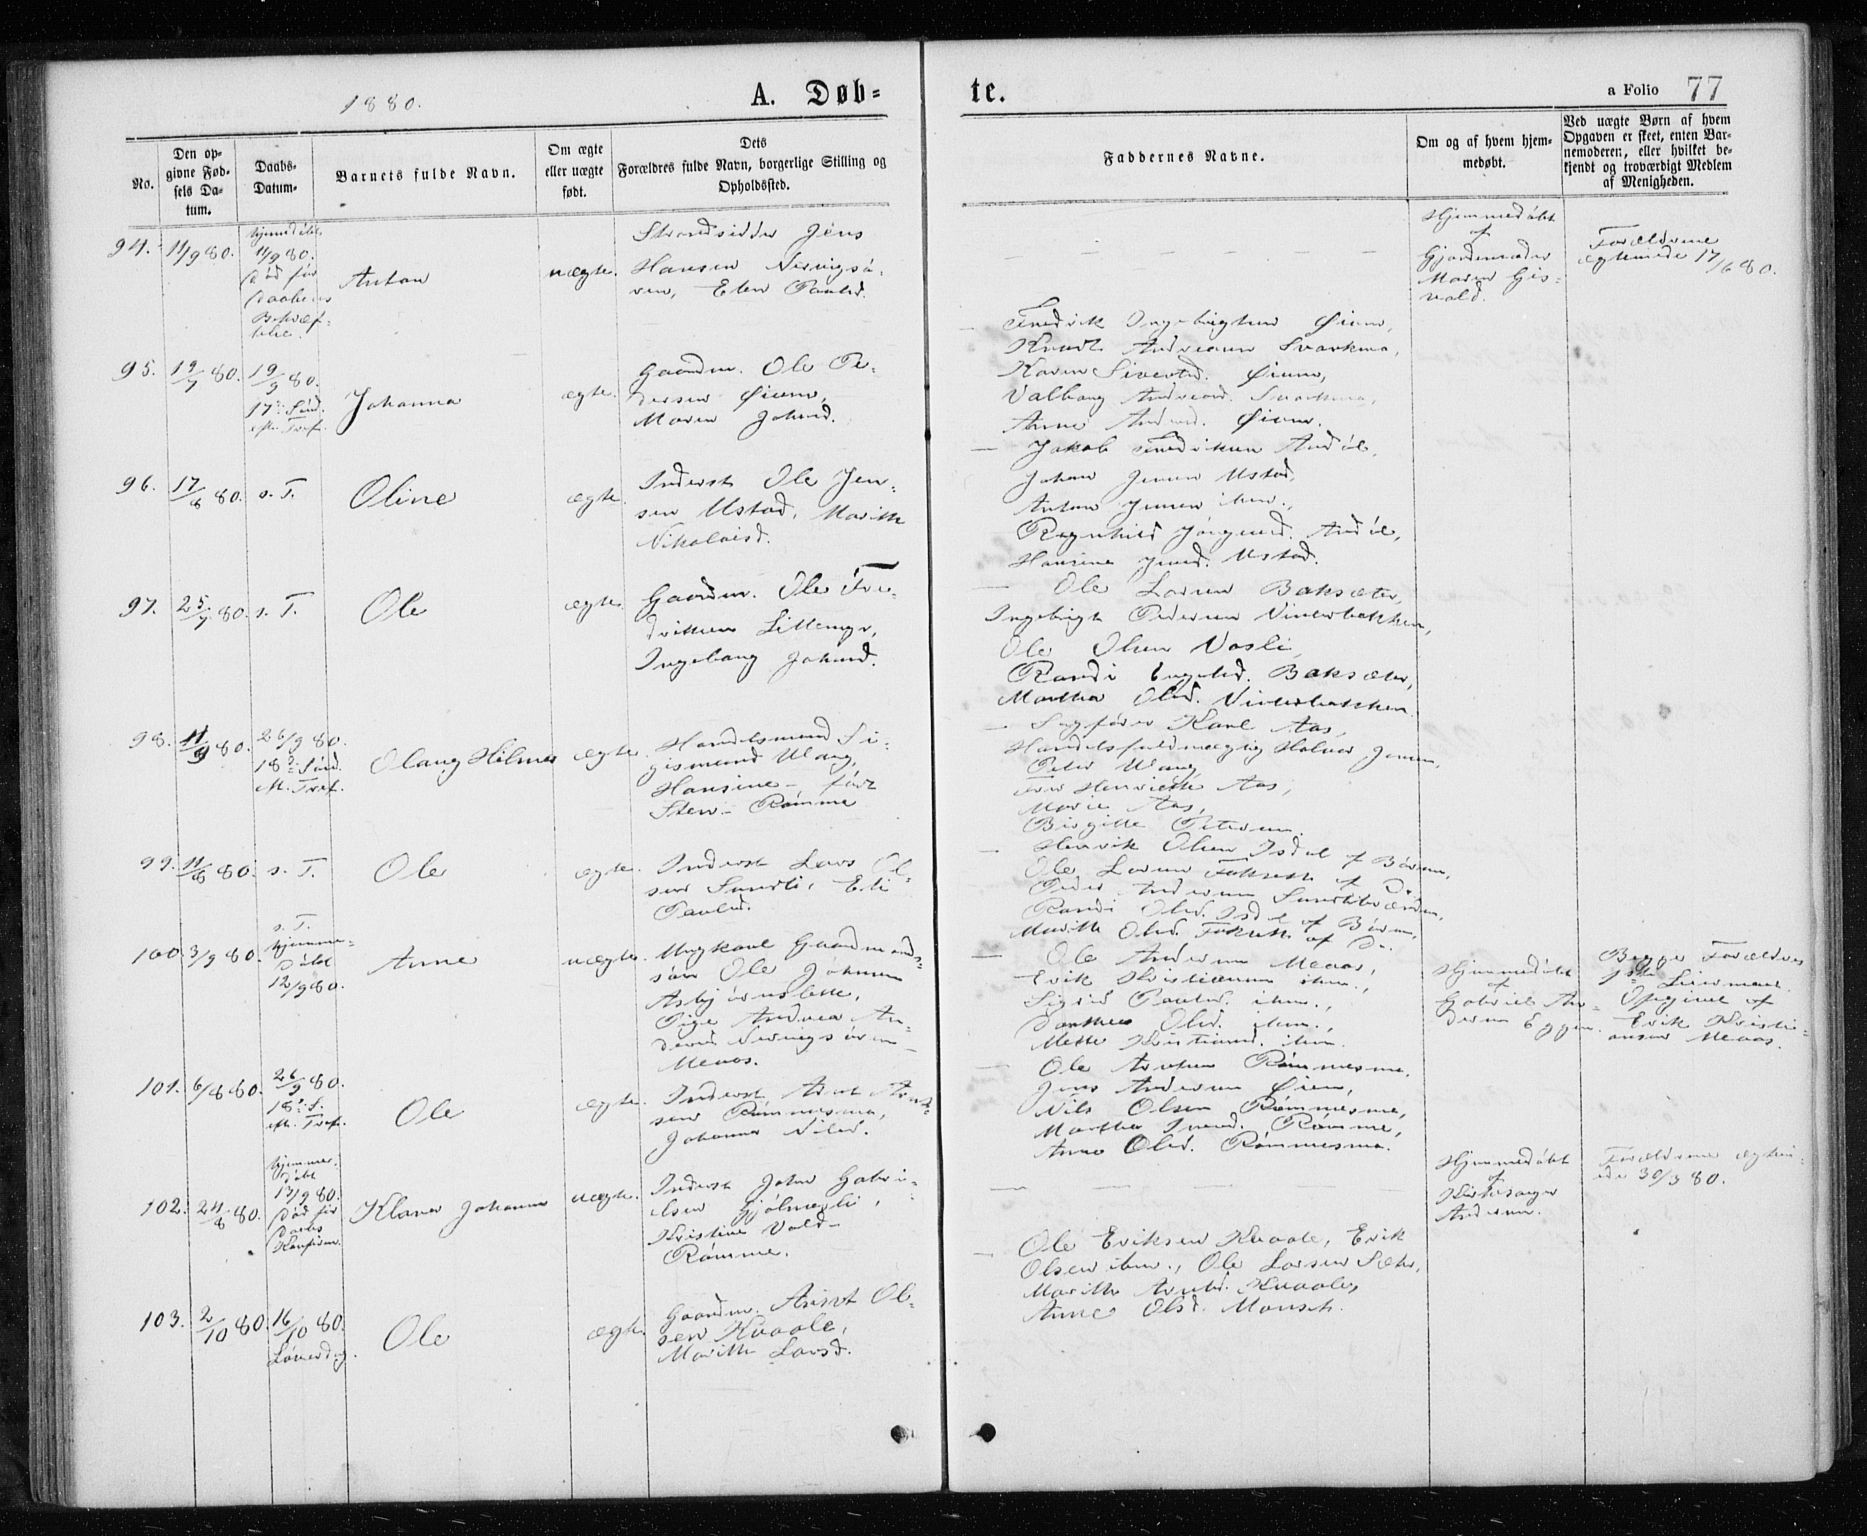 1880.
A. Døb=
te.
a Folio 77
No.
Den op-
givne Fød-
sels Da-
tum.
Daabs-
Datum.
Barnets fulde Navn.
Om ægte
eller uægte
født.
Dets
Forældres fulde Navn, borgerlige Stilling og
Opholdssted.
Faddernes Navne.
Om og af hvem hjem-
medøbt.
Ved uægte Børn af hvem
Opgaven er skeet, enten Bar-
nemoderen, eller hvilket be-
kjendt og troværdigt Medlem
af Menigheden.
94.
11/9 80.
Hjemmedøbt
11/9 80.
Død før
Daabens
Bekræf-
telse.
Anton
uægte.
Strandsidder Jens
Hansen Nervigsø-
ren, Elen Paulsd.
Hjemmedøbt
af
Gjordemoder
Maren Gis-
vold.
Forældrene
ægteviede 17/6 80.
95.
19/7 80.
19/9 80.
17de Sønd.
eft. Tref.
Johanna
ægte.
Gaardm. Ole Pe-
dersen Øiem,
Maren Johnsd.
Fredrik Ingebrigtsen Øiem,
Knudt Andreasen Svorkmo,
Karen Sivertsd. Øiem,
Valborg Andreasd. Svorkmo,
Anne Andersd. Øiem.
96.
17/8 80.
s. T.
Oline
ægte.
Inderst Ole Jen-
sen Ustad, Marith
Nikolaisd.
Jakob Fredriksen Andøl,
Johan Jensen Ustad,
Anton Jensen ibm.,
Ragnhild Jørgensd. Andøl,
Hansine Jensd. Ustad.
97.
25/7 80.
s. T.
Ole
ægte.
Gaardm. Ole Fre-
driksen Littemyr,
Ingeborg Johnsd.
Ole Larsen Baksæter,
Ingebrigt Pedersen Vinterbakken,
Ole Olsen Vasli,
Randi Engelsd. Baksæter,
Martha Olsd. Vinterbakken.
98.
11/9 80.
26/9 80.
18de Sønd.
eft. Tref.
Olaug Hilmar
ægte.
Handelsmand Si-
gismund Wang,
Hansine født
Sten - Rømme
Sagfører Karl Aas,
Handelsfuldmægtig Halvor Jensen,
Peter Wang,
Fru Henriette Aas,
Marie Aas,
Birgitte Petersen.
99.
11/8 80.
s. T.
Ole
ægte.
Inderst Lars Ol-
sen Sundli, Eli
Paulsd.
Henrik Olsen Isdal af Børsen,
Ole Larsen Fokseth af Do
Peder Andersen Sundlisveen,
Randi Olsd. Isdal af Børsen,
Marith Olsd. Fokseth af Do.
100.
3/9 80.
s. T.
Hjemme-
døbt
12/9 80.
Anne
uægte.
Ungkarl Gaardmands-
søn Ole Johnsen
Asbjørnslette,
Pige Andrea An-
dersd. Nervigsøren
Meaas.
Ole Andersen Meaas,
Erik Kristiansen ibm.,
Sigrid Paulsd. ibm.,
Dorthea Olsd. ibm.,
Mette Kristiansd. ibm.
Hjemmedøbt
af
Gabriel An-
dersen Eggen.
Begge Forældres
1ste Leiermaal.
Opgivet af
Erik Kristi-
ansen Meaas.
101.
6/8 80.
26/9 80.
18de S.
eft. Tref.
Ole
ægte.
Inderst Arnt Arnt-
sen Rømmesmo,
Johanna Nilsd.
Ole Arntsen Rømmesmo,
Jens Andersen Øiem,
Nils Olsen Rømmesmo,
Martha Iversd. Rømme,
Anne Olsd. Rømmesmo.
102.
24/8 80.
Hjemme-
døbt
13/9 80.
Død før
Daabs
Konfirm.
Klara Johanna
uægte.
Inderst John Gabri-
elsen Gjølmesli,
Kristine Vold-
Rømme.
Hjemmedøbt
af
Kirkesanger
Andersen.
Forældrene ægtevi-
ede 30/3 80.
103.
2/10 80.
16/10 80.
Løverdag.
Ole
ægte.
Gaardm. Arnt Ol-
sen Kvaale,
Marith Larsd.
Ole Eriksen Kvaale, Erik
Olsen ibm., Ole Larsen Sæter,
Marith Arntsd. Kvaale,
Anne Olsd. Monseth.